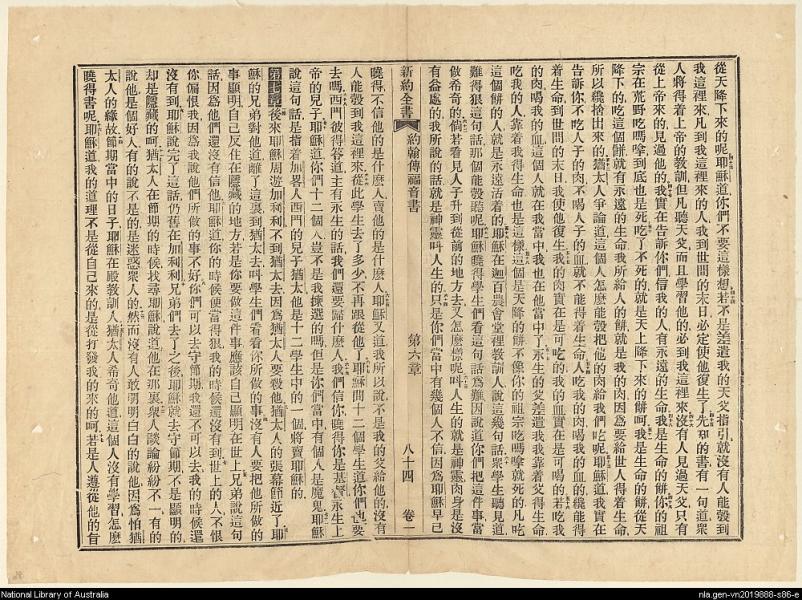 從天降下來的呢耶穌道你們不要這樣想若不是差遣我的天父指引就沒有人能彀到
我這裡來凡到我這裡來的人我到世間的末日必定使他復生了先知的書有一句道眾
人將得着上帝的教訓但凡聽天父而且學習他的必到我這裡來沒有人見過天父只有
從上帝來的見過他的我實在告訴你們信我的人有永遠的生命我是生命的餅你的祖
宗在荒野吃嗎嗱到底也是死吃了不死的就是天上降下來的餅呵我是生命的餅從天
降下的吃這個餅就有永遠的生命我所給人的餅就是我的肉因爲要給世人得着生命
所以纔捨出來的猶太人爭論道這個人怎麽能彀把他的肉給我們吃呢耶穌道我實在
告訴你不吃人子的肉不喝人子的血就不能得着生命人吃我的肉喝我的血的纔能得
着生命到世間的末日我使他復生我的肉實在是可吃的我的血實在是可喝的若吃我
的肉喝我的血這個人就在我當中我也在他當中了永生的父差遣我我靠着父得生命
吃我的人靠着我得生命也是這樣這個是天降的餅不像你的祖宗吃嗎嗱就死的凡吃
這個餅的人就是永遠活着的耶穌在迦百農會堂裡教訓人說這幾句話眾學生聽見道
難得狠這句話那個能彀辨呢耶穌曉得學生們看這句話爲難因說道你們把這件事當
做希奇的倘若看見人子升到從前的地方去又怎麽樣呢叫人生的就是神靈肉身是沒
有益處的我所說的話就是神靈叫人生的只是你們當中有幾個人不信因爲耶穌早已
新約全書 約翰傳福音書 第六章 八十四 卷一
曉得不信他的是什麽人賣他的是什麽人耶穌又道我所以說不是我的父給他的沒有
人能彀到我這裡來從此學生去了多少不再跟從他了耶穌問十二個學生道你們也要
去嗎西門彼得答道主有永生的話我們還要歸什麽人我們信你曉得你是基督永生上
帝的兒子耶穌道你們十二個人豈不是我揀選的嗎但是你們當中有個人是魔鬼耶穌
說這句話是指着加畧人西門的兒子猶太他是十二學生中的一個將賣耶穌的
第七章後來耶穌周遊加利利不到猶太去因爲猶太人要殺他猶太人的張幕節近了耶
穌的兄弟對他道離了這裏到猶太去叫學生們看看你所做的事沒有人要把他所做的
事顯明自己反住在隱藏的地方若是你要做這件事應該自己顯明在世上兄弟說這句
話因爲他們還沒有信他耶穌道你的時候便當得狠我的時候還沒有到世上的人不恨
你偏恨我因爲我說他們所做的事不好你們可以去守節期我還不可以去我的時候還
沒有到耶穌說完了這話仍舊在加利利兄弟們去了之後耶穌就去守節期不是顯明的
却是隱藏的呵猶太人在節期的時候找尋耶穌說道他在那裏眾人談論紛紛不一有的
說他是個好人有的說不是的是迷惑眾人的然而沒有人敢明明白白的說他因爲怕猶
太人的緣故節期當中的日子耶穌在殿教訓人猶太人希奇他道這個人沒有學習怎麽
曉得書呢耶穌道我的道理不是從自己來的是從打發我的來的呵若是人遵從他的旨
National Library of Australia
nla.gen-vn2019888-s86-e